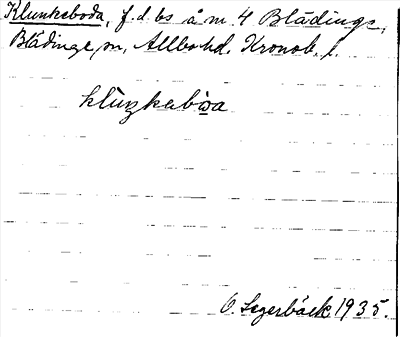 Klunkeboda, f.d. bs å m 4 Blädinge,
Blädinge sn, Allbo hd. Kronob. l.
klùŋkabòa
O. Segerbäck 1935.